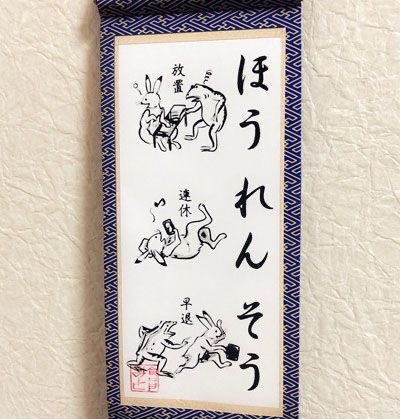 ほうれんそう
放置
連休
早退